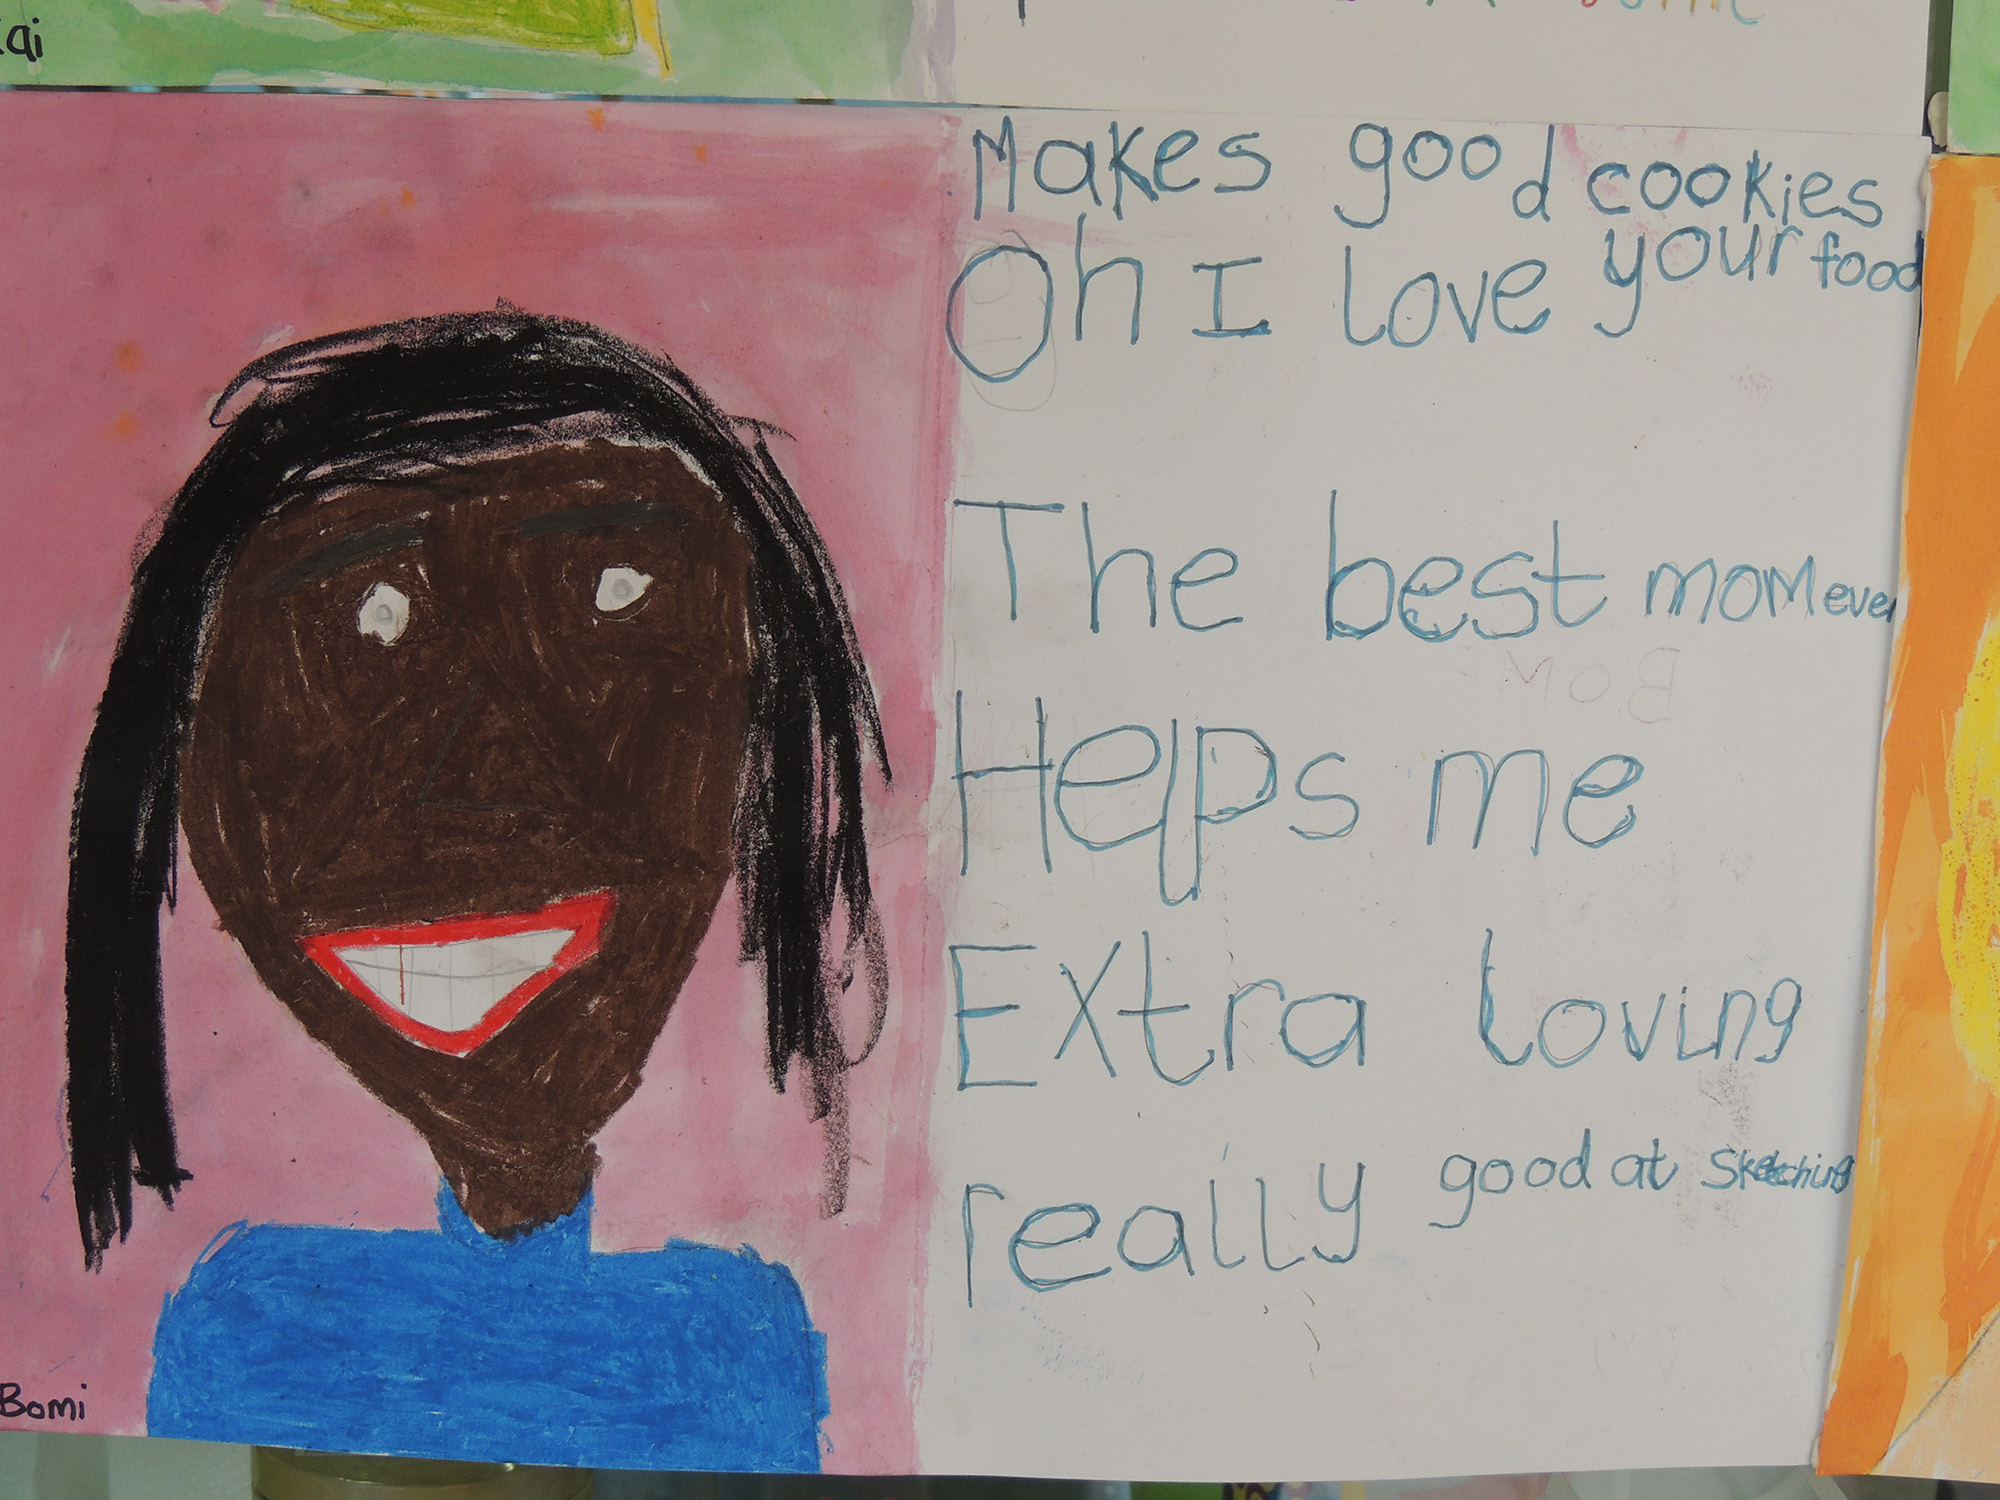 Makes good cookies
Oh I love your food
The best mom ever
Helps me
Extra loving
really good at sketching
Bomi